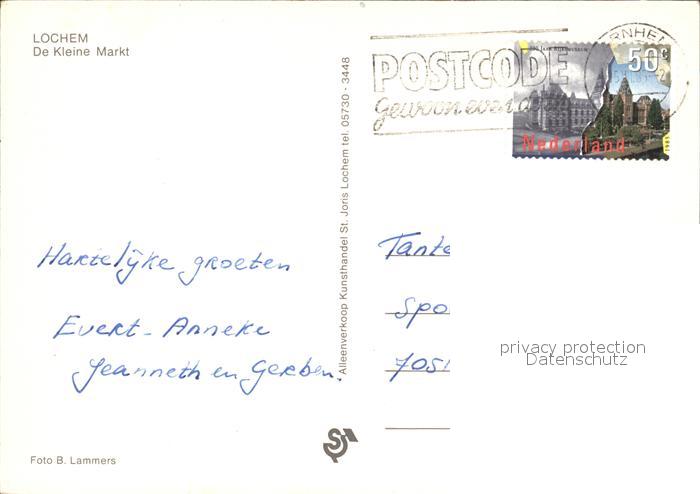 LOCHEM
De Kleine Markt
POSTCODE
gewoon even d
RNHEM
100 JAAR RIJKSMUSEUM
50c
Nederland
1985
Hartelijke groeten
Evert - Anneke
Jeanneth en Gerben.
Alleenverkoop Kunsthandel St. Joris Lochem tel. 05730 - 3448
Tante
Spo
7051
privacy protection
Datenschutz
Foto B. Lammers